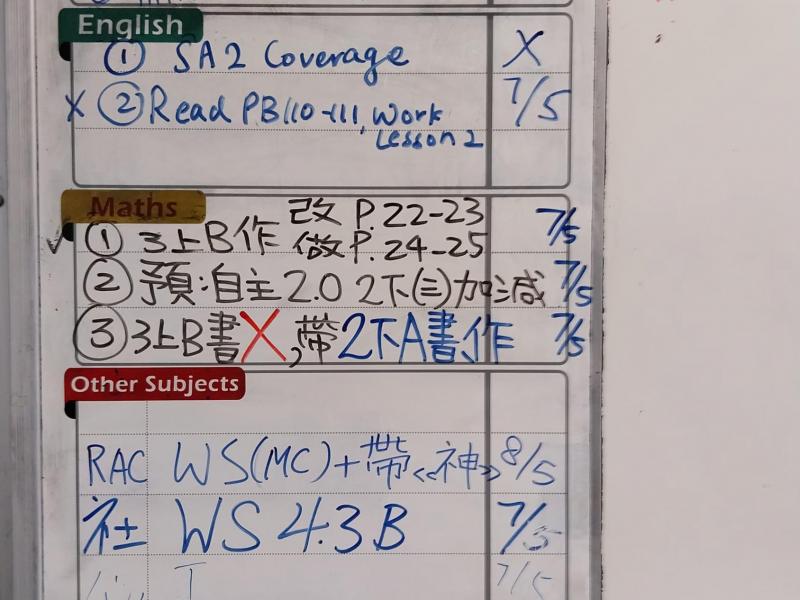 English
① SA2 Coverage X
X ② Read PB110-111, Work 7/5
Lesson 2
Maths
改 P.22-23
✓ ① 3上B作 做 P.24-25 7/5
② 預:自主2.0 2下(三)加減 7/5
③ 3上B書X,帶2下A書作 7/5
Other Subjects
RAC WS(MC)+帶《神》 8/5
社 WS 4.3B 7/5
7/5